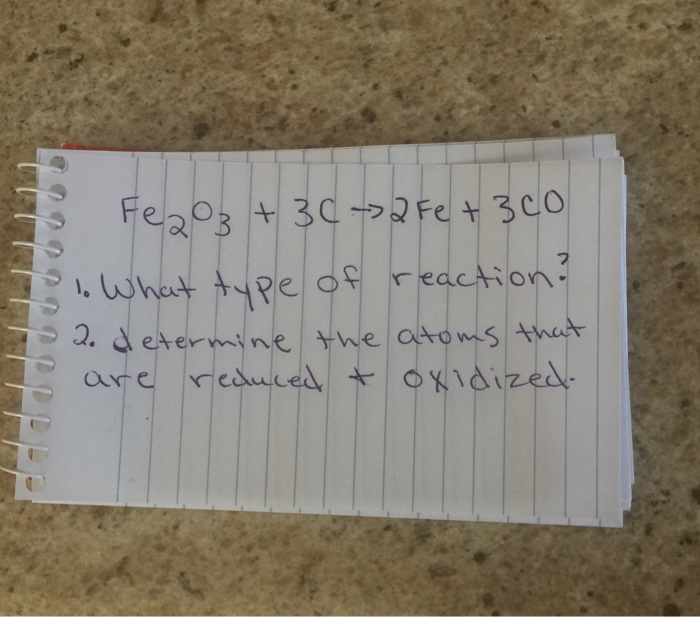 Fe₂O₃ + 3C → 2Fe + 3CO
1. What type of reaction?
2. determine the atoms that
are reduced + oxidized.